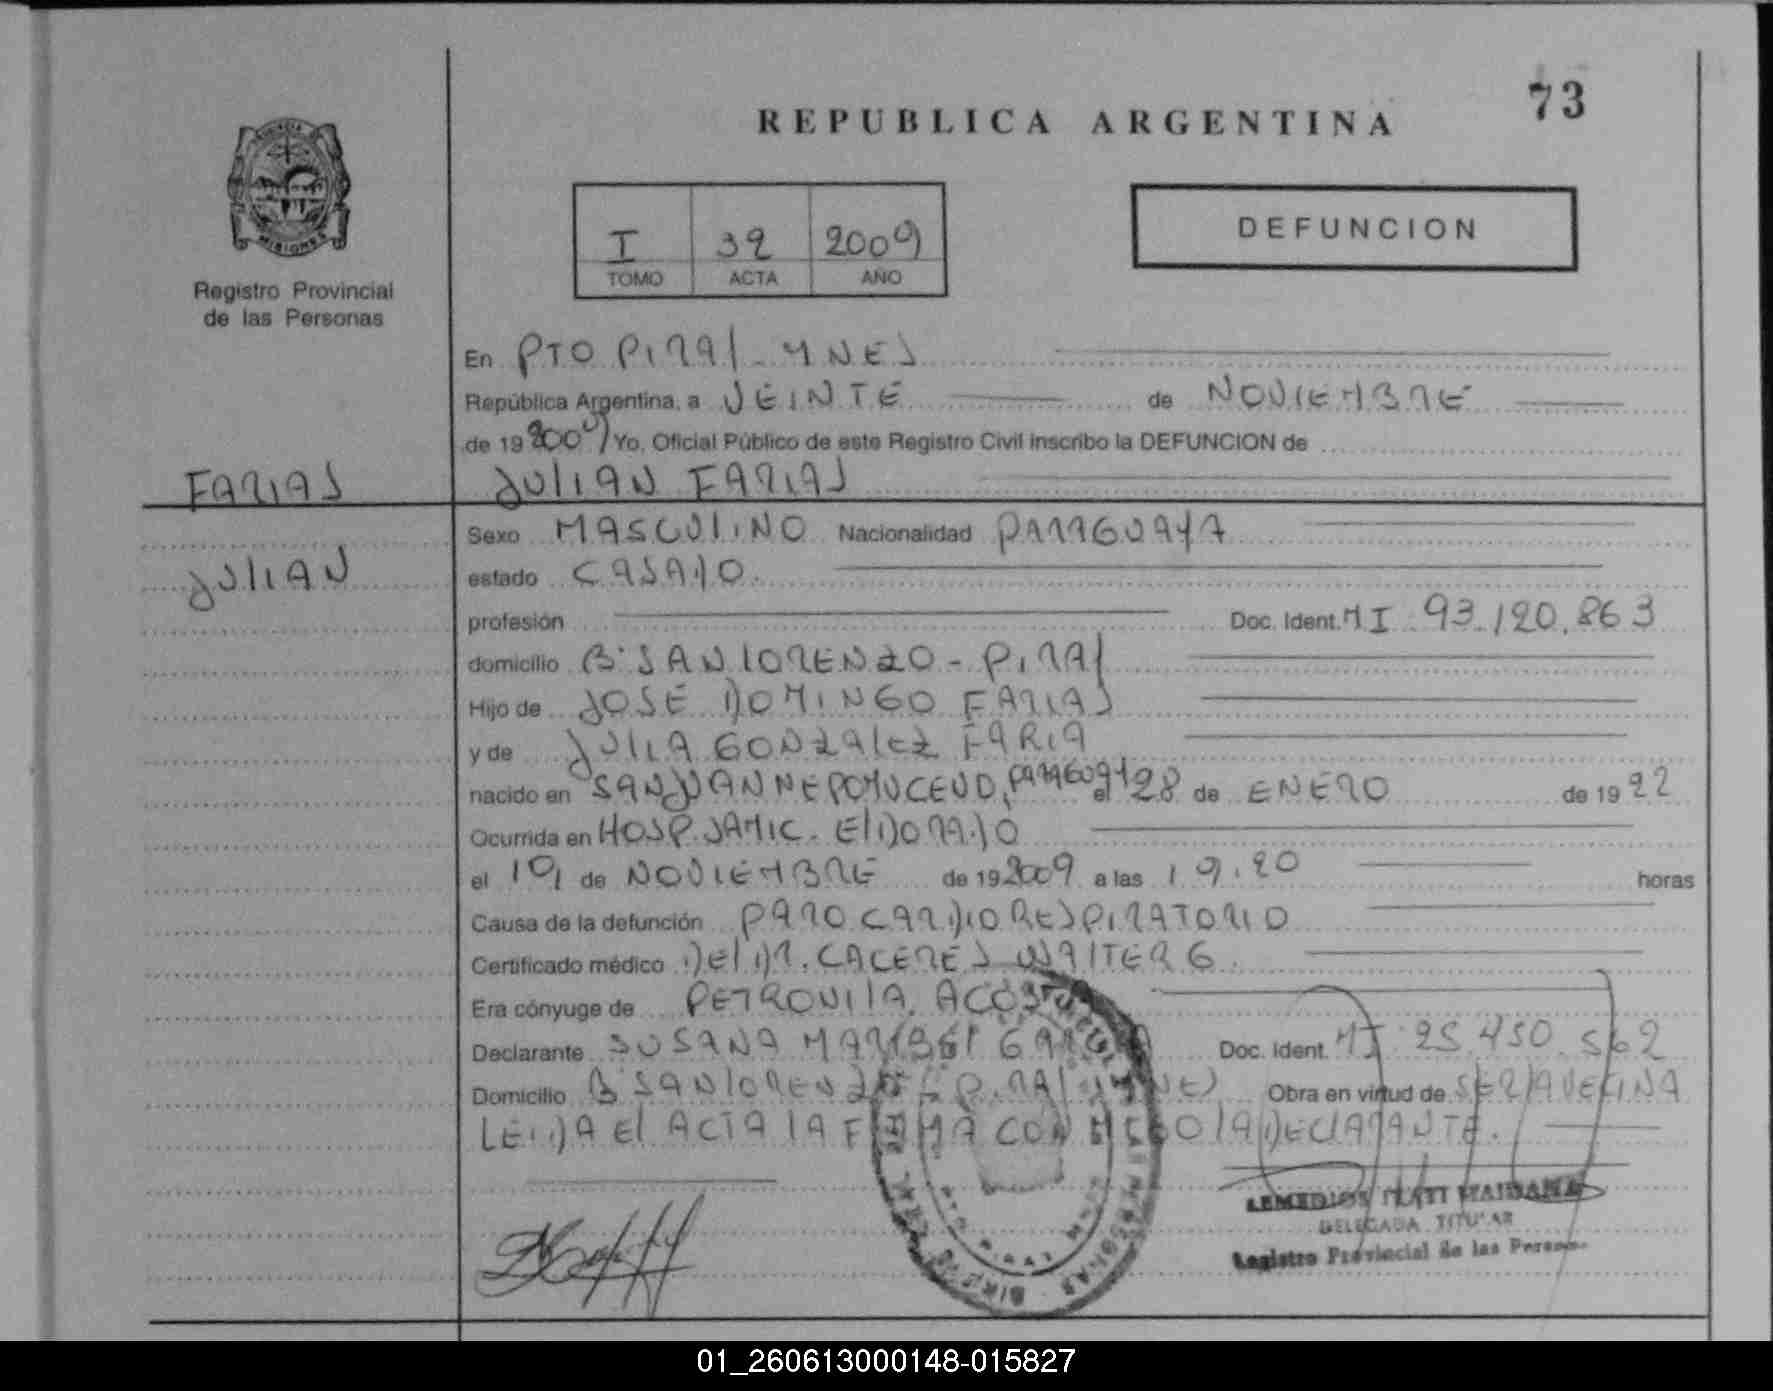 73
REPUBLICA ARGENTINA
MISIONES
Registro Provincial
de las Personas
I 32 2009
TOMO ACTA AÑO
DEFUNCION
En PTO PIRAI - MNES
República Argentina, a VEINTE de NOVIEMBRE
de 19 2009 Yo, Oficial Público de este Registro Civil inscribo la DEFUNCION de
FARIAS
JULIAN
JULIAN FARIAS
Sexo MASCULINO Nacionalidad PARAGUAYA
estado CASADO.
profesión Doc. Ident. MI 93.120.863
domicilio B° SAN LORENZO - PIRAI
Hijo de JOSE DOMINGO FARIAS
y de JULIA GONZALEZ FARIA
nacido en SAN JUAN NEPOMUCENO, PARAGUAY el 28 de ENERO de 19 22
Ocurrida en HOSP. SAMIC. ELDORADO
el 19 de NOVIEMBRE de 19 2009 a las 19.20 horas
Causa de la defunción PARO CARDIO RESPIRATORIO
Certificado médico DEL DR. CACERES WALTER G.
Era cónyuge de PETRONILA ACOSTA
Declarante SUSANA MARIBEL Doc. Ident. MI 25.450.562
Domicilio B° SAN LORENZO - PIRAI - MNES Obra en virtud de SER VECINA
LEIDA EL ACTA LA FIRMA CONMIGO LA DECLARANTE.
REMEDIOS ITATI MAIDANA
DELEGADA TITULAR
Registro Provincial de las Personas
01_260613000148-015827